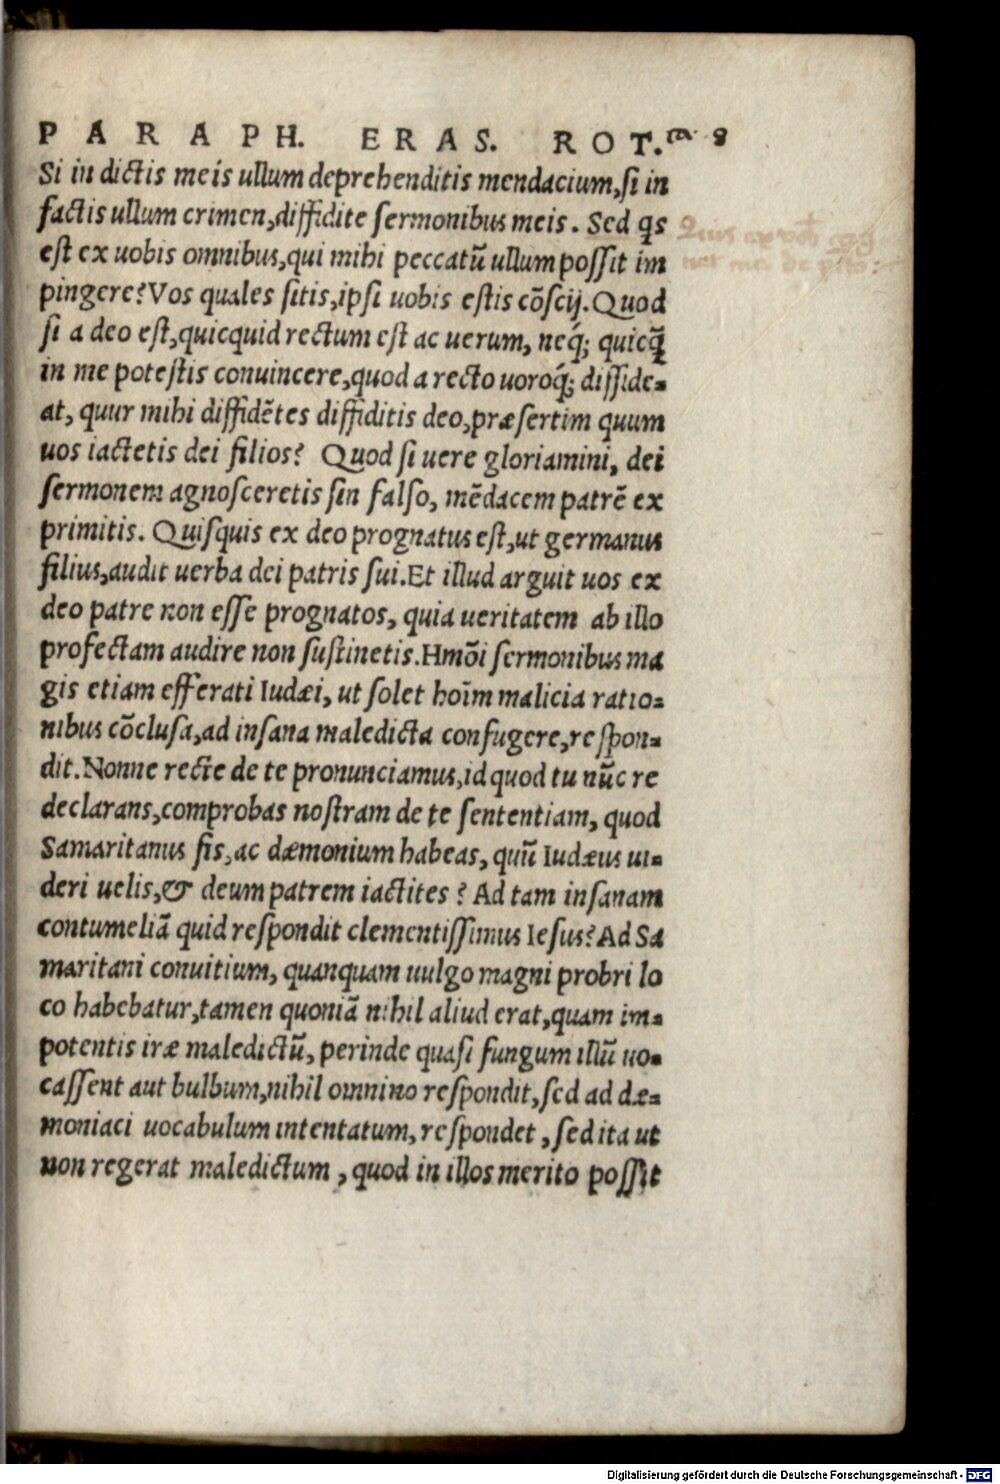 PARAPH. ERAS. ROT. 8
Si in dictis meis ullum deprehenditis mendacium, si in
factis ullum crimen, diffidite sermonibus meis. Sed q̃s
est ex uobis omnibus, qui mihi peccatũ ullum possit im
pingere? Vos quales sitis, ipsi uobis estis cõscij. Quod
si a deo est, quicquid rectum est ac uerum, neq́; quicq̃
in me potestis conuincere, quod a recto uoroq́; disside⸗
at, quur mihi diffidẽtes diffiditis deo, præsertim quum
uos iactetis dei filios? Quod si uere gloriamini, dei
sermonem agnosceretis sin falso, mẽdacem patrẽ ex
primitis. Quisquis ex deo prognatus est, ut germanus
filius, audit uerba dei patris sui. Et illud arguit uos ex
deo patre non esse prognatos, quia ueritatem ab illo
profectam audire non sustinetis. Hmõi sermonibus ma
gis etiam efferati Iudæi, ut solet hoĩm malicia ratio⸗
nibus cõclusa, ad insana maledicta confugere, respon⸗
dit. Nonne recte de te pronunciamus, id quod tu nũc re
declarans, comprobas nostram de te sententiam, quod
Samaritanus sis, ac dæmonium habeas, quũ Iudæus ui⸗
deri uelis, & deum patrem iactites? Ad tam insanam
contumeliã quid respondit clementissimus Iesus? Ad Sa
maritani conuitium, quanquam uulgo magni probri lo
co habebatur, tamen quoniã nihil aliud erat, quam im⸗
potentis iræ maledictũ, perinde quasi fungum illũ uo⸗
cassent aut bulbum, nihil omnino respondit, sed ad dæ⸗
moniaci uocabulum intentatum, respondet, sed ita ut
non regerat maledictum, quod in illos merito possit
Digitalisierung gefördert durch die Deutsche Forschungsgemeinschaft - DFG